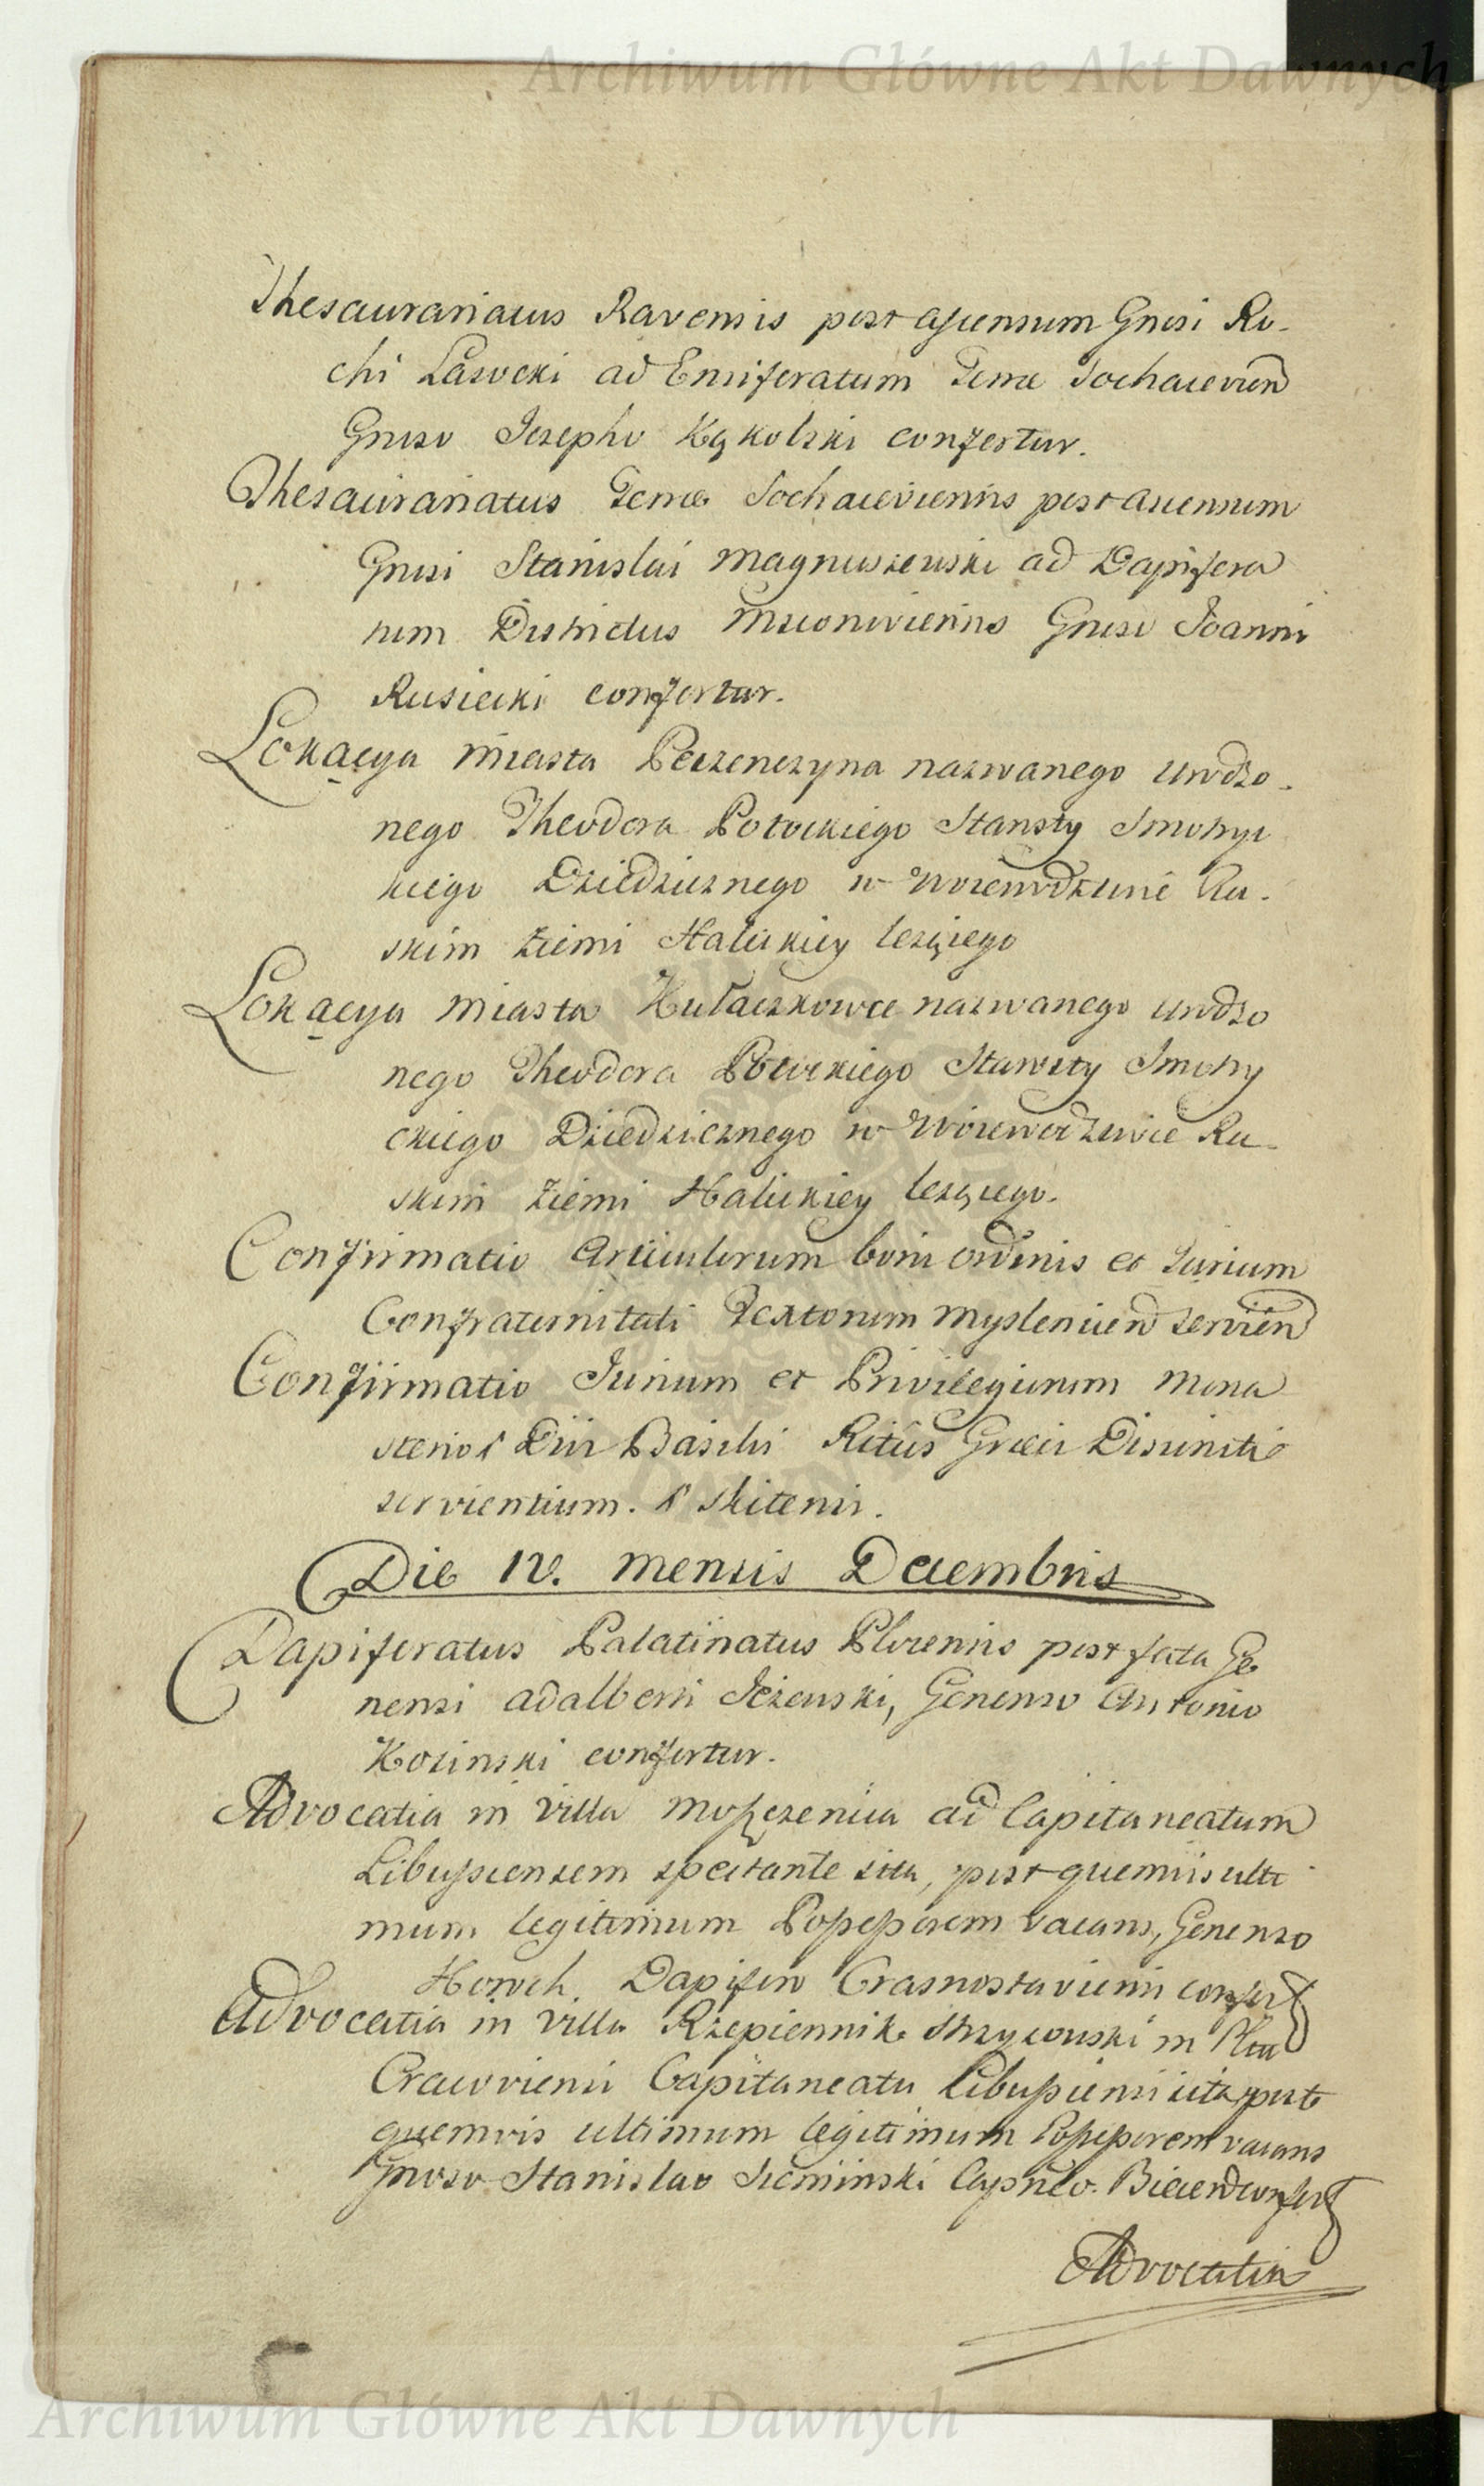 Archiwum Główne Akt Dawnych
Thesaurariatus Ravensis post ascensum Gnosi Ro-
chi Lasocki ad Ensiferatum Terræ Sochacevien
Gnoso Josepho Kąkolski confertur.
Thesaurariatus Terræ Sochaceviensis post ascensum
Gnosi Stanislai Magnuszewski ad Dapifera
tum Districtus Mscionoviensis Gnoso Joanni
Rusiecki confertur.
Lokacya miasta Peczenczyna nazwanego urodzo-
nego Theodora Potockiego Starosty Smotryc
kiego Dziedzicznego w Wojewodztwie Ru-
skim Ziemi Halickiey lezącego
Lokacya miasta Kułaczkowce nazwanego urodzo
nego Theodora Potockiego Starosty Smotry
ckiego Dziedzicznego w Woiewodztwie Ru-
skim Ziemi Halickiey lezącego.
Confirmatio Articulorum boni ordinis et Jurium
Confraternitati Textorum Myslenicen servien
Confirmatio Jurium et Privilegiorum Mona
sterio Divi Basilii Ritûs Græci Disuniti
servientium. Skitensi.
Die IV. Mensis Decembris
Dapiferatus Palatinatus Plocensis post fata Ge
nerosi Adalberti Jeżewski, Generoso Antonio
Kosinski confertur.
Advocatia in Villa Moszczenica ad Capitaneatum
Libussiensem spectante sita, post quemvis ulti
mum legitimum Possessorem vacans, Generoso
Horoch Dapifero Crasnostaviensi confert
Advocatia in Villa Rzepiennik Strzyzowski in Pltu
Cracoviensi Capitaneatu Libussiensi sita post
quemvis ultimum legitimum Possessorem vacans
Gnoso Stanislao Sieminski Capneo Biecen confert
Advocatia
Archiwum Główne Akt Dawnych